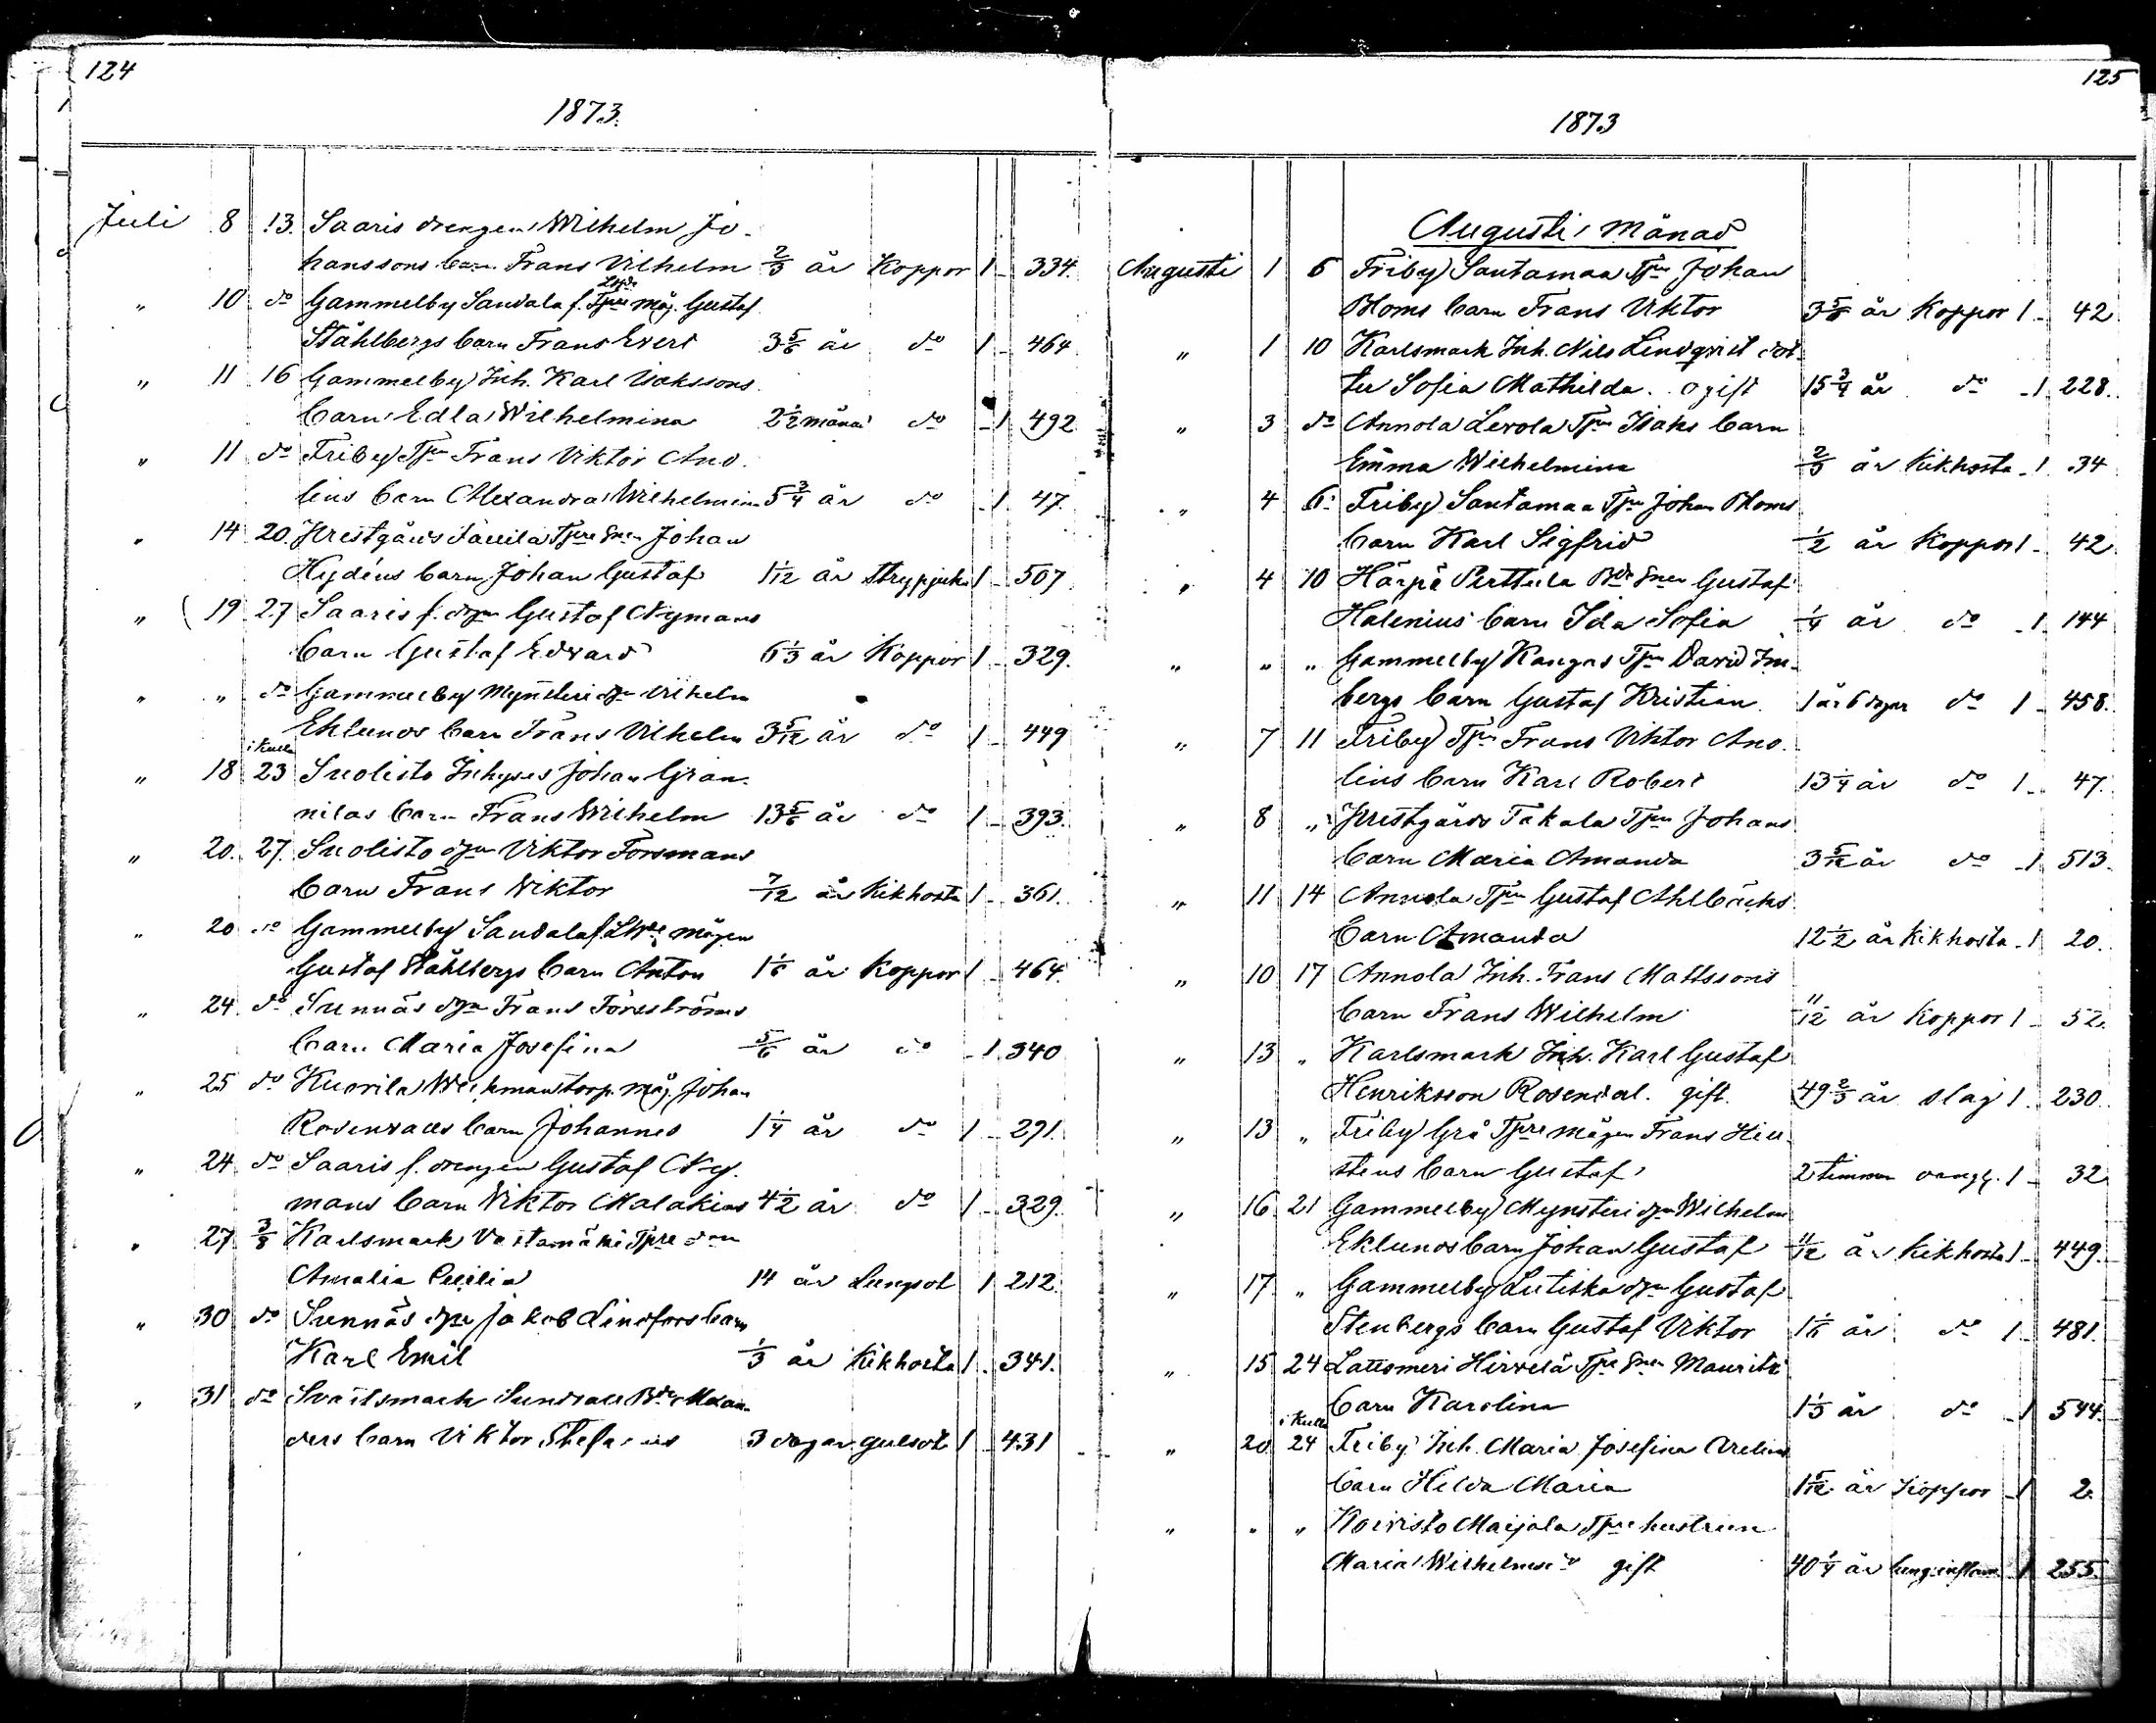 124
1873.
Juli 8 13. Saaris drengen Wilhelm Jo-
hanssons barn Frans Vilhelm 2/3 år Koppor 1 - 334.
" 10 do Gammelby Sandala f. Tpre måg. Gustaf
Ståhlbergs barn Frans Evert 3 5/6 år do 1 - 464
" 11 16 Gammelby Inh. Karl Isakssons
barn Edla Wilhelmina 2 1/2 månad do - 1 492
" 11 do Friby Tpn Frans Viktor Ano-
lins barn Alexandra Wilhelmina 5 3/4 år do - 1 47.
" 14 20. Prestgårds Tpre Snen Johan
Hydéns barn Johan Gustaf 1 1/12 år Strypsjuka 1 - 507
" 19 27 Saaris f. dgn Gustaf Nymans
barn Gustaf Edvard 6 1/3 år Koppor 1 - 329.
" " do Gammelby Mynsteri dgn Vilhelm
Eklunds barn Frans Vilhelm 3 5/12 år do 1 - 449
i Kulla
" 18 23 Suolisto Inhyses Johan Gran-
nilas barn Frans Wilhelm 13 5/6 år do 1 - 393.
" 20. 27. Suolisto dgn Viktor Forsmans
barn Frans Wiktor 7/12 år Kikhosta 1 - 361.
" 20 do Gammelby Sandala f. mågen
Gustaf Ståhlbergs barn Anton 1 1/6 år Koppor 1 - 464.
" 24. do Sunnäs dgn Frans Torsströms
barn Maria Josefina 5/6 år do - 1 340
" 25 do Kuorila torp. måg. Johan
Rosenvalls barn Johannes 1 1/4 år do 1 - 291.
" 24 do Saaris f. drengen Gustaf Ny-
mans barn Viktor Malakias 4 1/2 år do 1 - 329.
" 27 3/8 Karlsmark Vastamäki Tpre don
Amalia Cecilia 14 år Lungsot 1 212.
" 30 do Sunnäs dgn Jakob Lindfors barn
Karl Emil 1/3 år Kikhosta 1 - 341.
" 31 do Svartsmark Sundvall Bde Alexan-
ders barn Viktor Stefanus 3 dagar gulsot 1 - 431
125
1873
Augusti månad
Augusti 1 6 Friby Santamaa Tpn Johan
Bloms barn Frans Viktor 3 5/6 år Koppor 1 - 42
" 1 10 Karlsmark Inh. Nils Lindqvist dot-
ter Sofia Mathilda. ogift 15 3/4 år do - 1. 228.
" 3 do Annola Levola Tpn Isaks barn
Emma Wilhelmina 2/3 år Kikhosta - 1 34
" 4 6 Friby Santamaa Tpn Johan Bloms
barn Karl Sigfrid 1/2 år Koppor 1 - 42
" 4 10 Härpö Perttula Bde Snen Gustaf
Halenius barn Ida Sofia 1/4 år do - 1. 144
" " " Gammelby Kangas Tpn David Im-
bergs barn Gustaf Kristian 1 år 6 dagar do 1 - 458.
" 7 11 Friby Tpn Frans Viktor Ano-
lins barn Karl Robert 13 1/4 år do 1 - 47.
" 8 " Prestgårds Takala Tpn Johans
barn Maria Amanda 3 5/12 år do - 1 513.
" 11 14 Annola Tpn Gustaf Ahlbäcks
barn Amanda 12 1/2 år Kikhosta - 1 20.
" 10 17 Annola Inh. Frans Mattssons
barn Frans Wilhelm 11/12 år Koppor 1 - 52.
" 13 " Karlsmark Inh. Karl Gustaf
Henriksson Rosendal. gift. 49 2/3 år slag 1 - 230.
" 13 " Friby Grå Tpre mågen Frans Hell-
stens barn Gustaf 2 timmar 1 - 32
" 16 21 Gammelby Mynsteri dgn Wilhelm
Eklunds barn Johan Gustaf 11/12 år Kikhosta 1 - 449.
" 17 " Gammelby Lutiska dgn Gustaf
Stenbergs barn Gustaf Viktor 1 1/6 år do 1 - 481.
" 15 24 Lattomeri Hirvelä Tpre Snen Maurits
barn Karolina 1 1/3 år do - 1 544.
i Kulla
" 20 24 Friby Inh. Maria Josefina Arelins
barn Hilda Maria 1 5/12 år Koppor - 1 2.
" " " Koivisto Maijala Tpre hustrun
Maria Wilhelmsdr gift 40 1/4 år lunginflam. - 1 255.